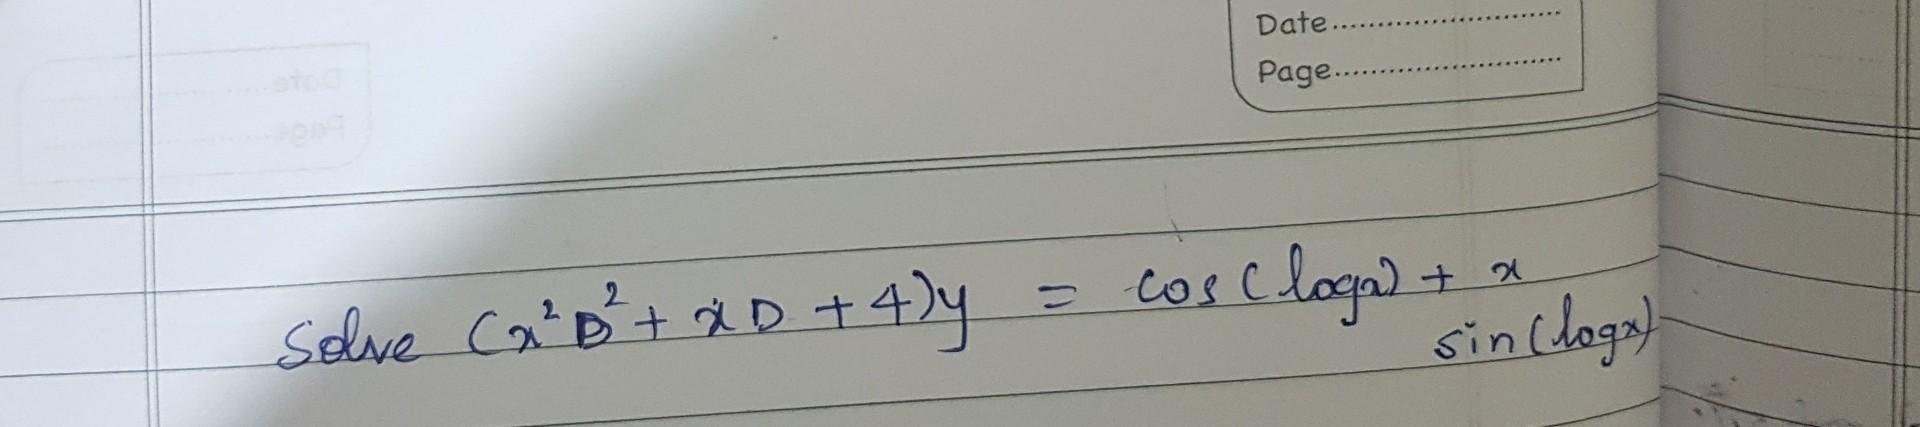 Date
Page
Date
Page
Solve (x²D² + xD + 4)y = cos(logx) + x
sin(logx)